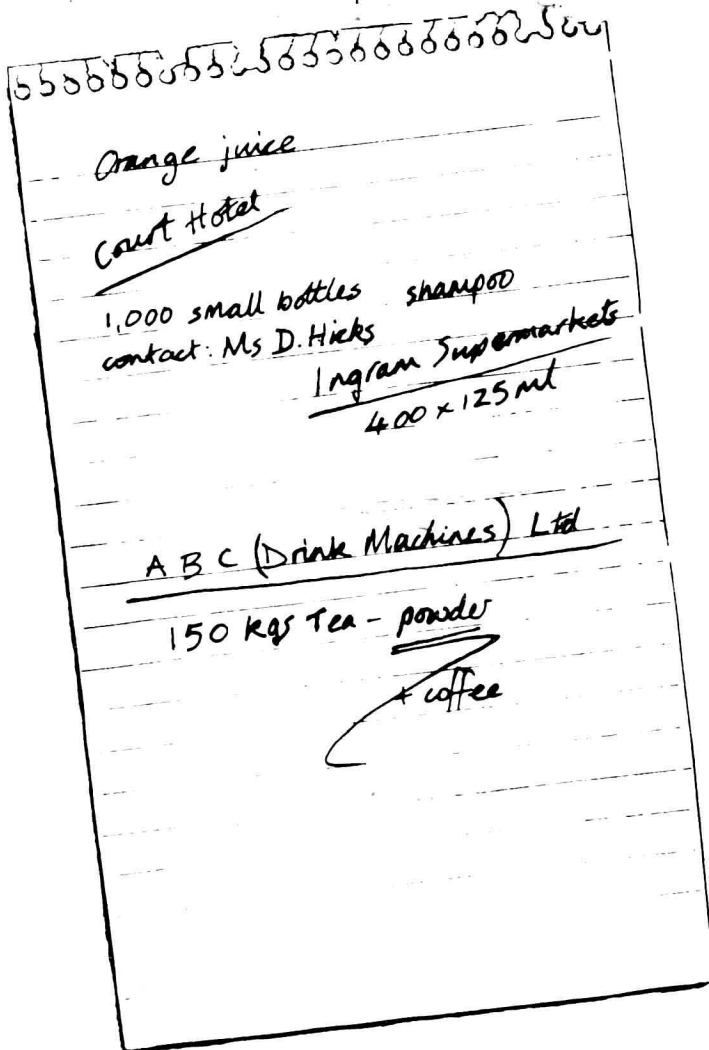 Orange juice
Court Hotel
1,000 small bottles shampoo
contact: Ms D. Hicks
Ingram Supermarkets
400 x 125 ml
A B C (Drink Machines) Ltd
150 kgs Tea - powder
+ coffee